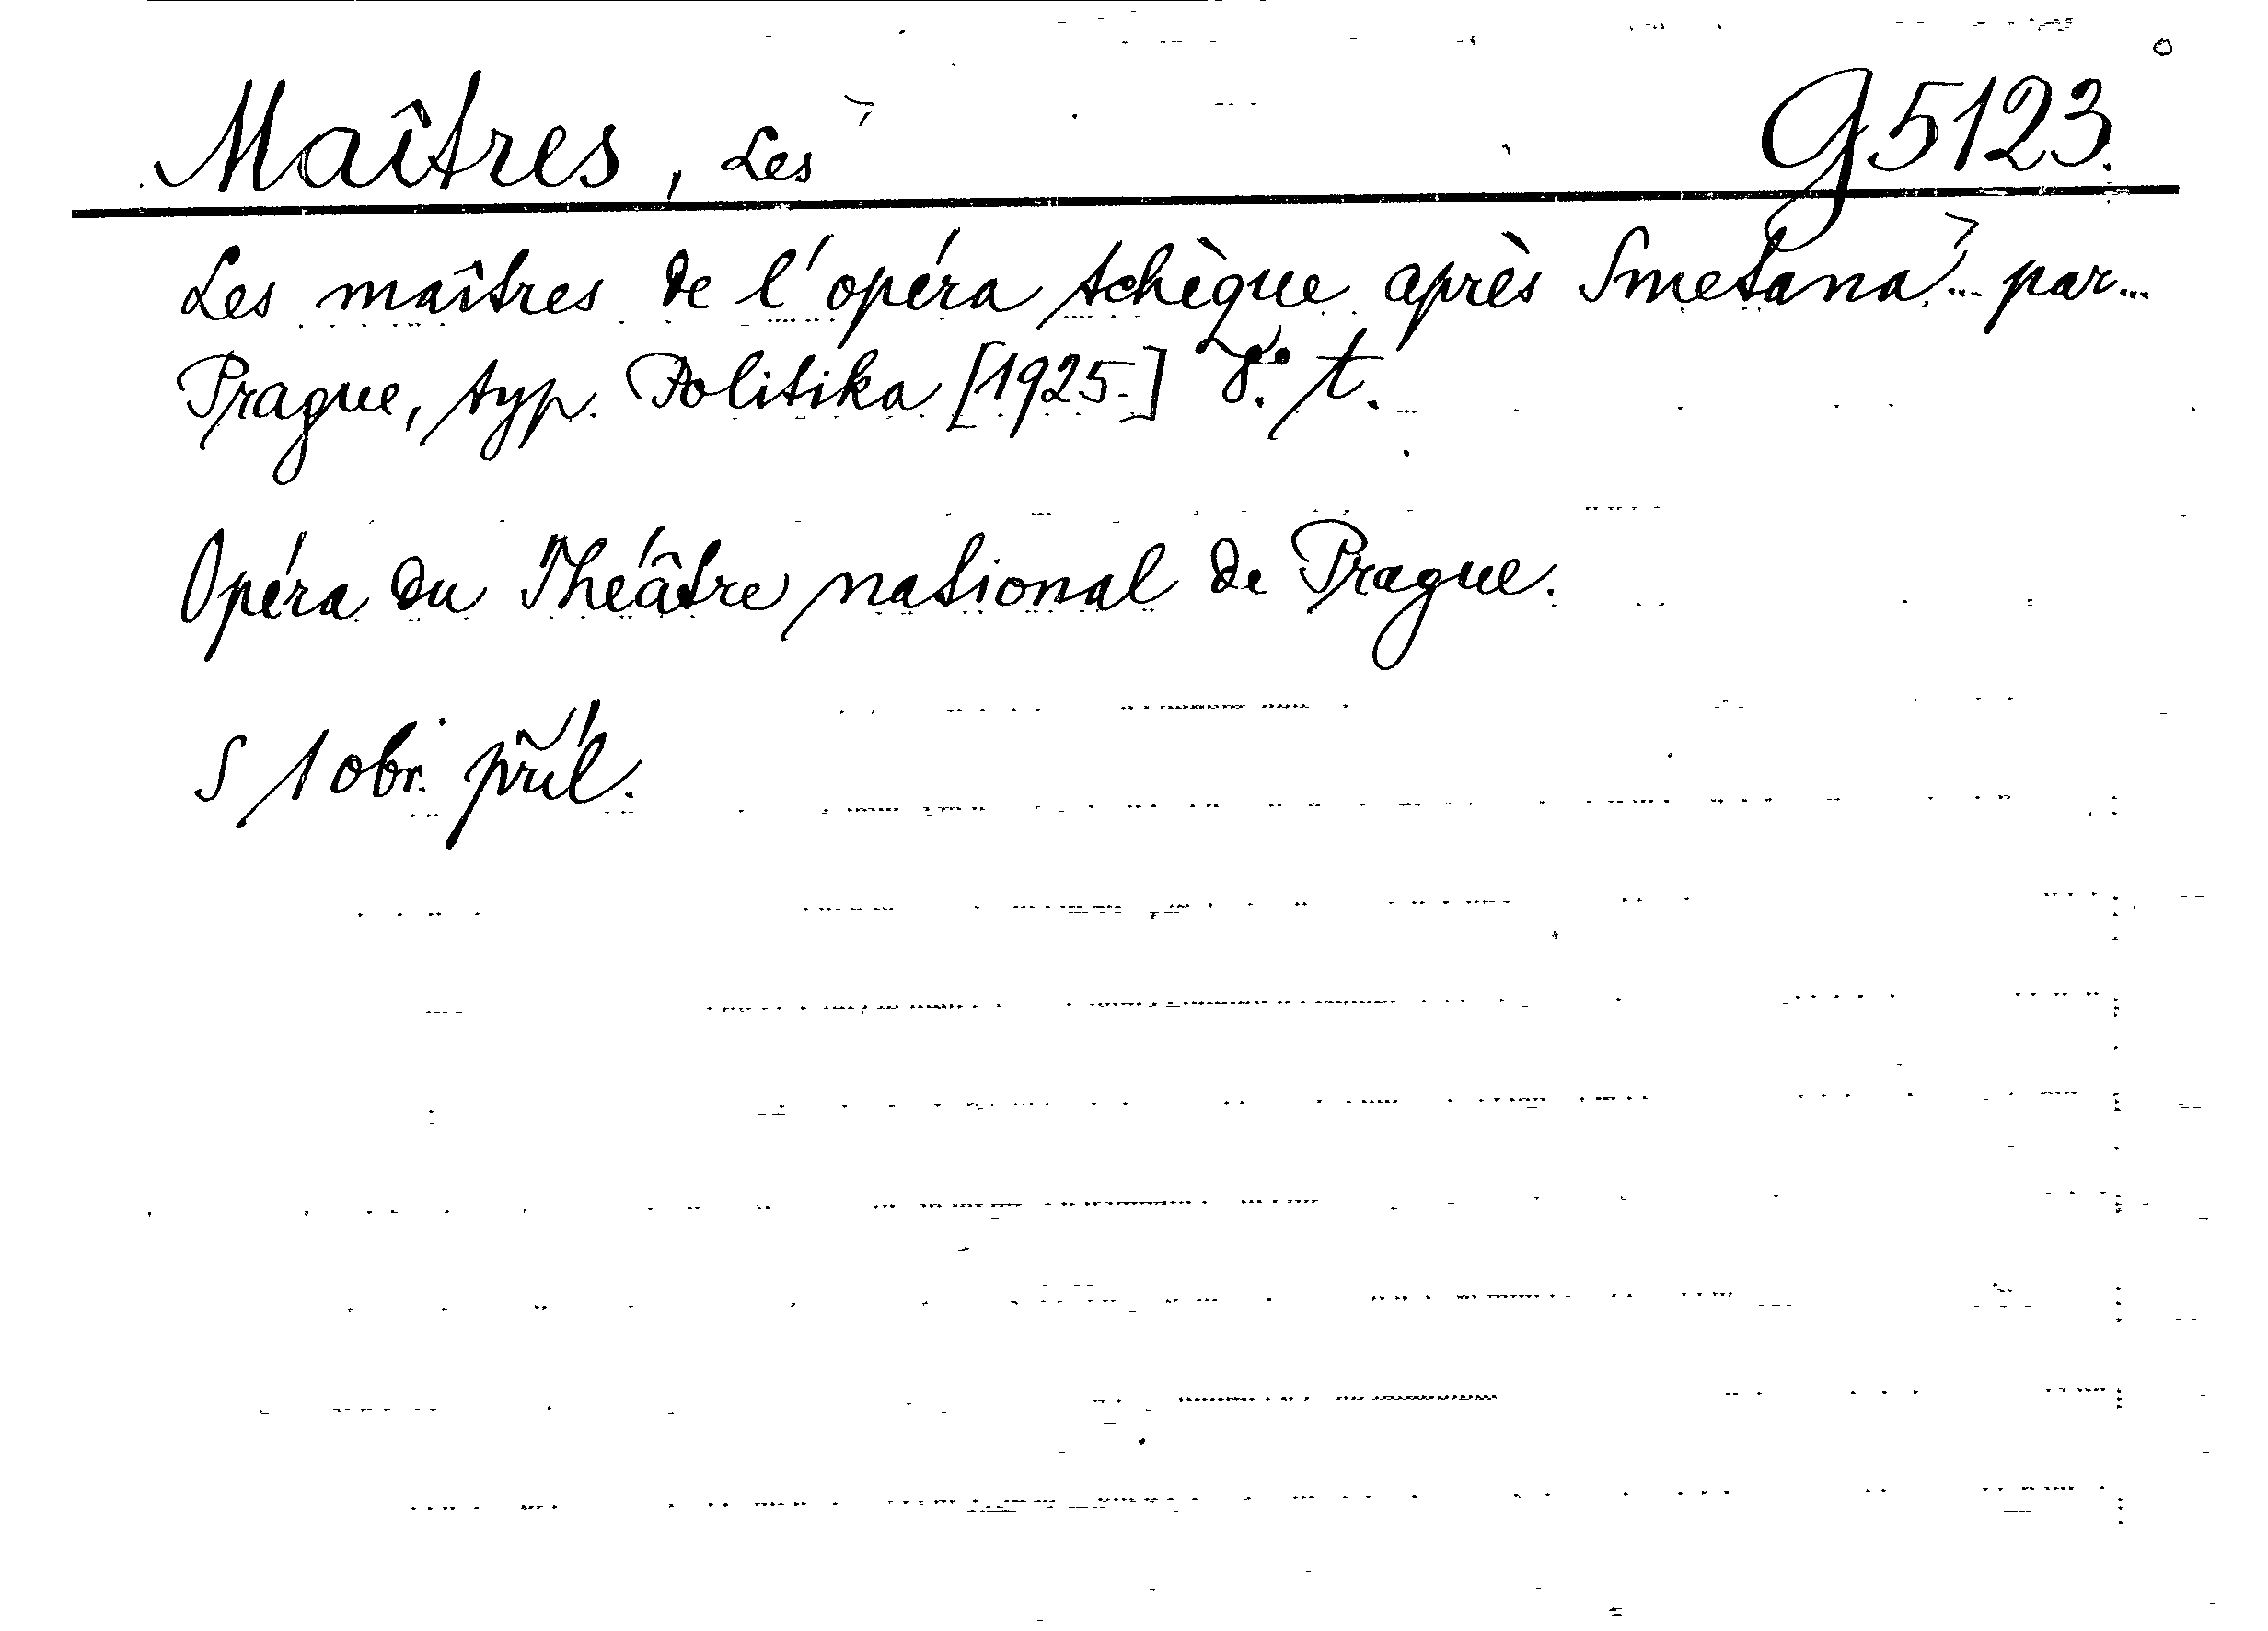 Maîtres, Les G 5123.
Les maîtres de l'opéra tchèque après Smetana... par...
Prague, typ. Politika [1925.] 8°. t.
Opéra du Théâtre national de Prague.
S 1 obr. příl.